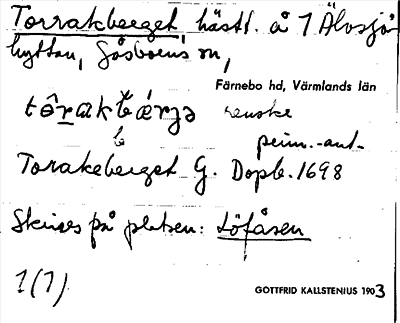 Torrakberget, hästt. å 1 Älvsjö-
hyttan, Gåsborns sn,
Färnebo hd, Värmlands län
tôrakbærjə
b
Torakeberget G. Dopb. 1698
Skrives på platsen: Löfåsen
1(1)
GOTTFRID KALLSTENIUS 1903